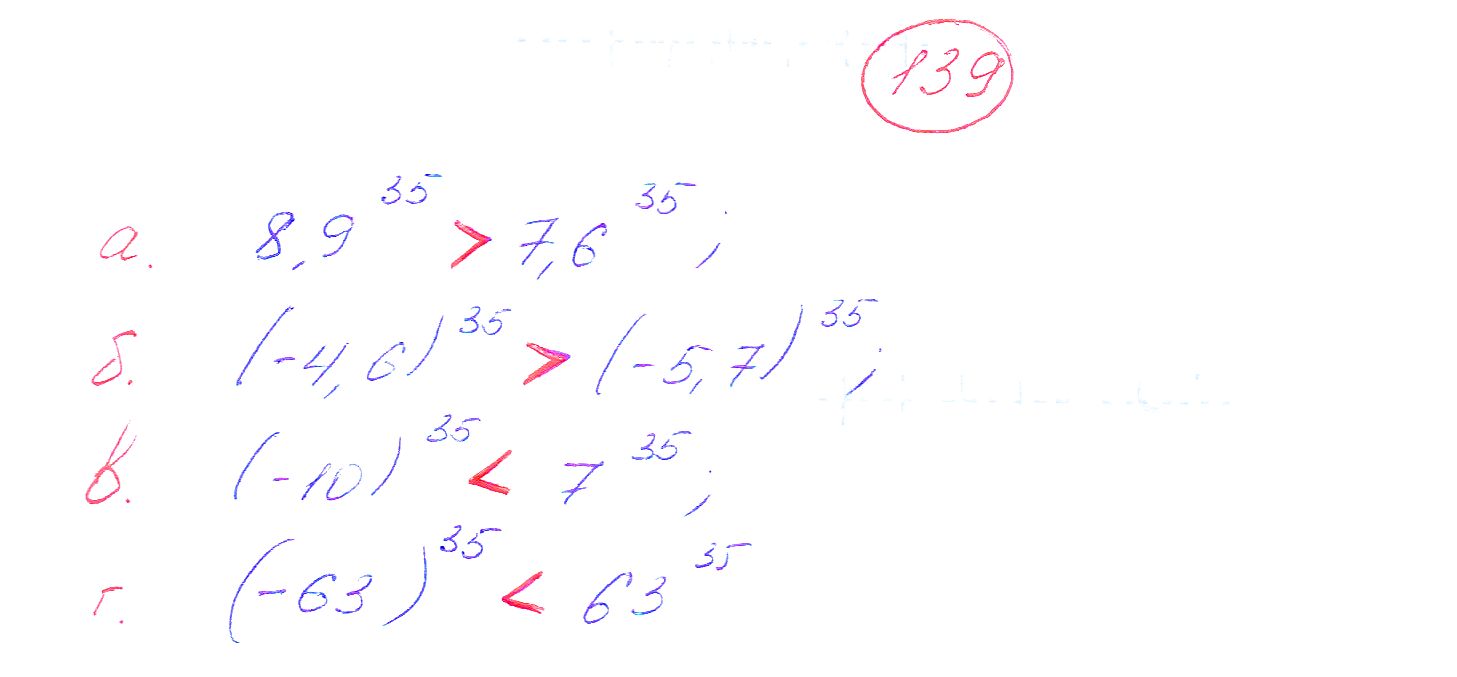 139
а. 8,9^35 > 7,6^35;
б. (-4,6)^35 > (-5,7)^35;
в. (-10)^35 < 7^35;
г. (-63)^35 < 63^35